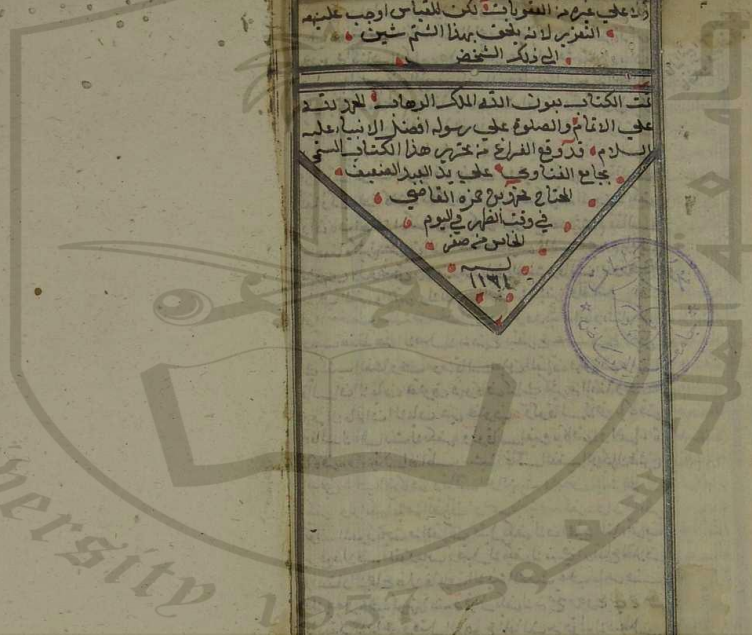 ذلك على غيره من العقوبات لكن للقياس اوجب عليه
التعزير لانه يلحق بهذا الشتم شين
الى ذلك الشخض
تمت الكتاب بعون الله الملك الوهاب الحمد لله
علي الاتمام والصلوة علي رسوله افضل الانبياء عليه
السلام قد وقع الفراغ من تحرير هذا الكتاب المسمى
بجامع الفتاوي علي يد العبد الضعيف
المحتاج بن حمزه القاضي
في وقت الظهر في اليوم
الخامس من صفر
سنه
versity 1957
سعود